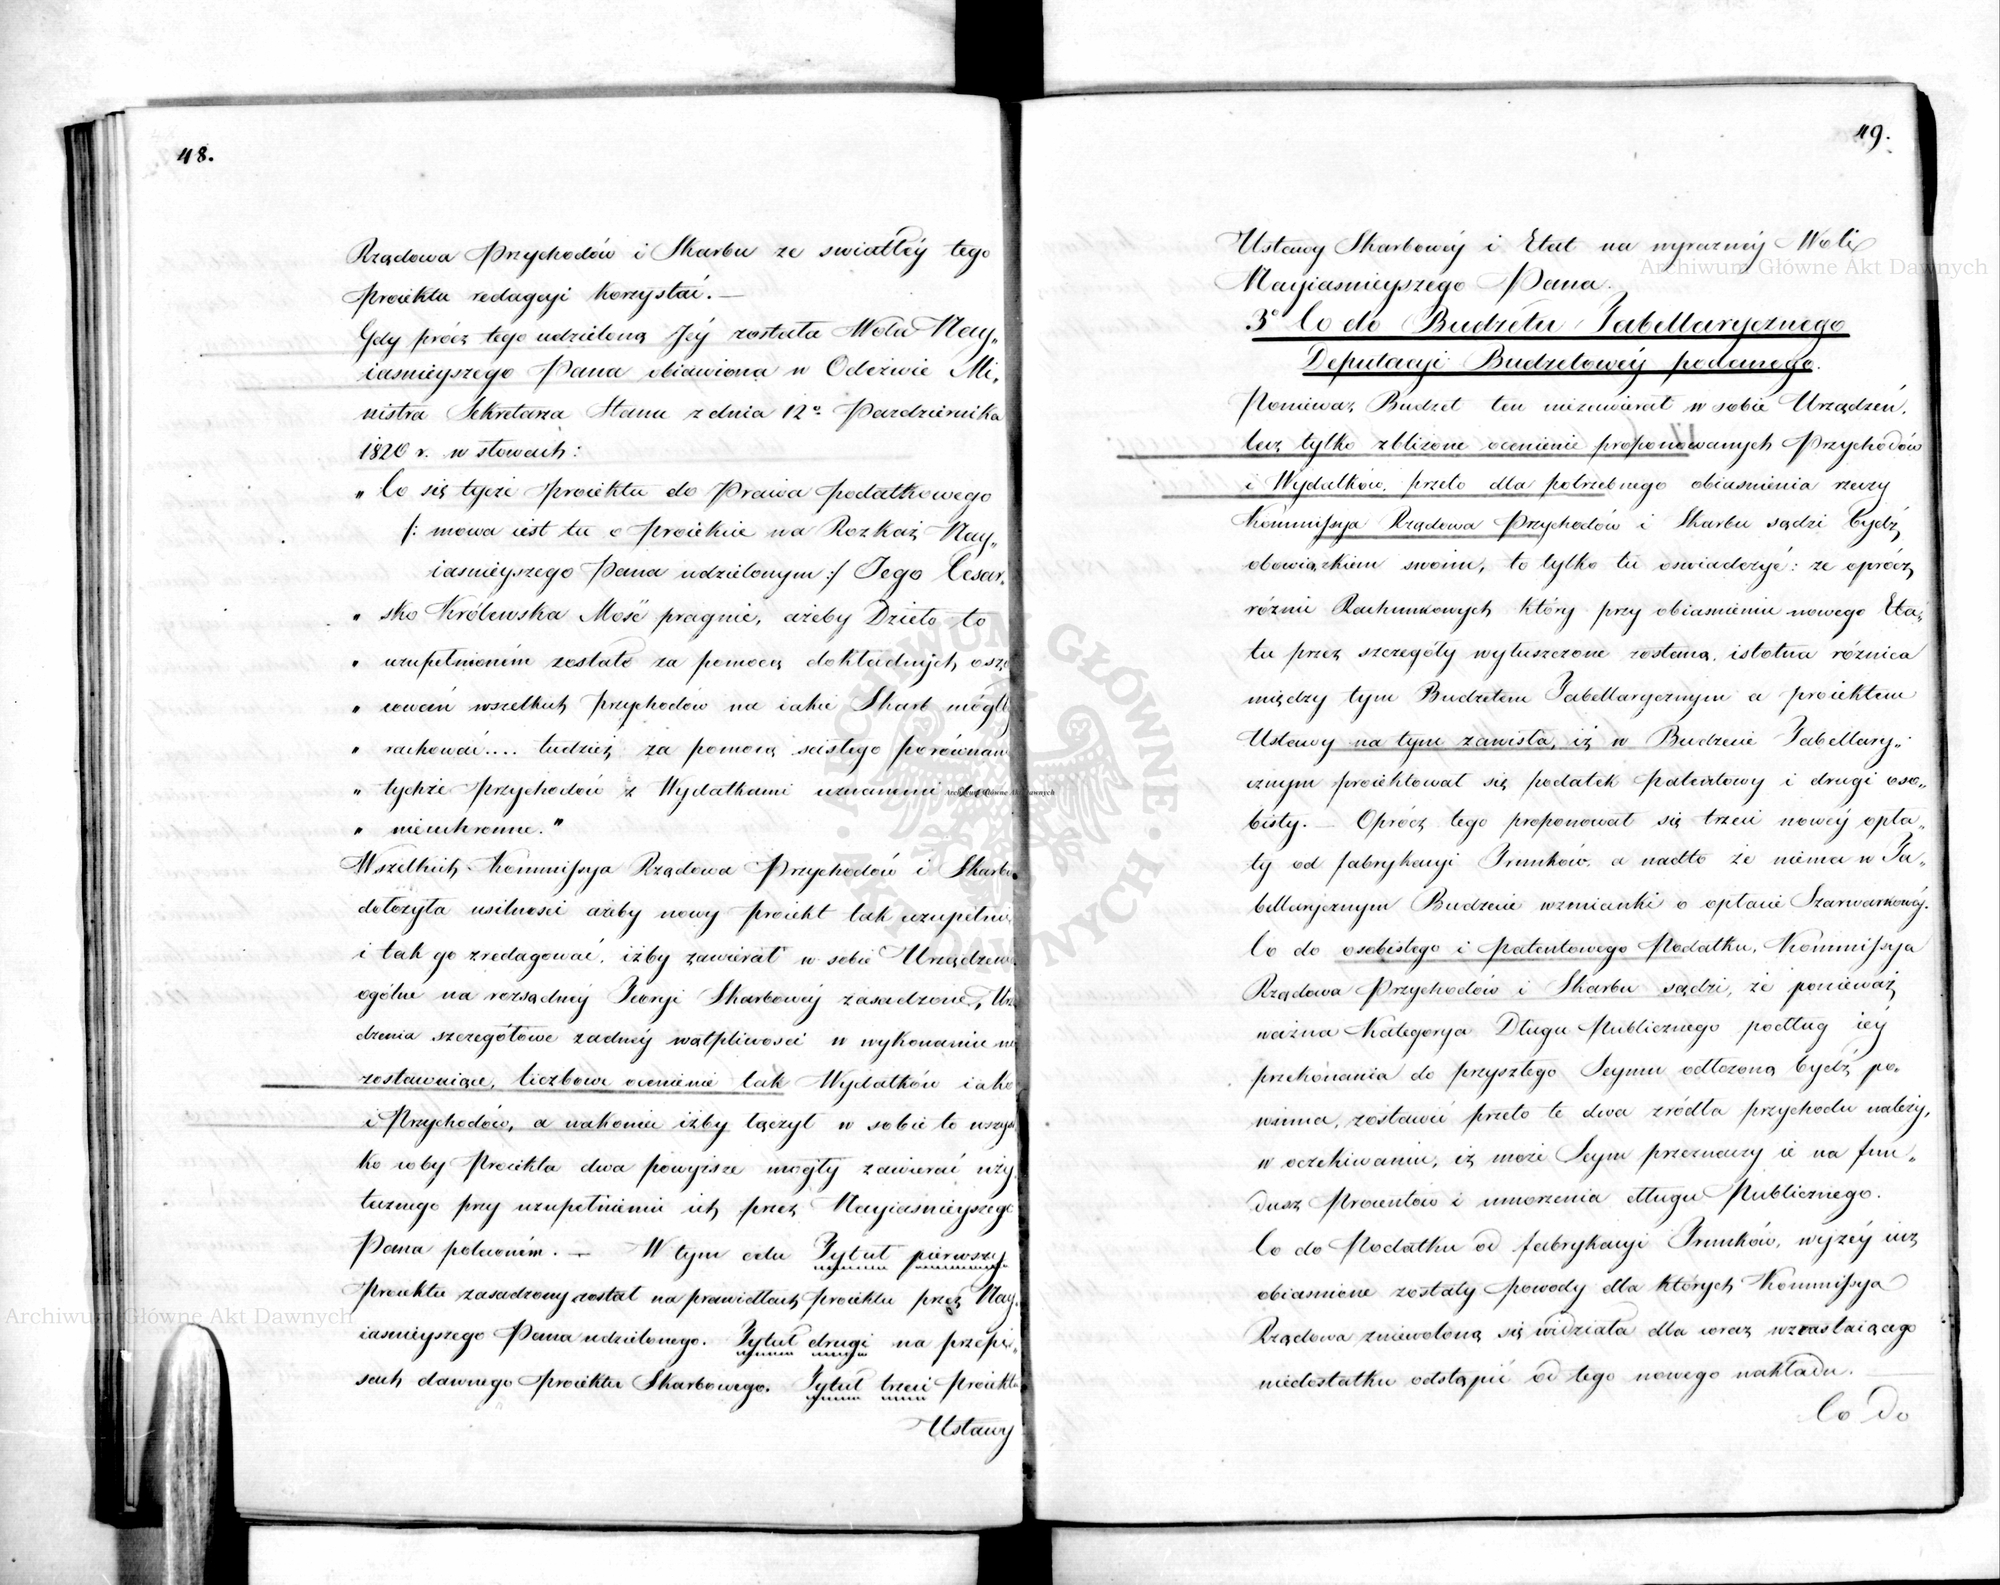 48.
Rządowa Przychodów i Skarbu ze swiatłéy tego
proiektu redagcyi korzystać. —
Gdy prócz tego udzieloną Jéy została Wola Nay„
iasnieyszego Pana obiawiona w Odezwie Mi„
nistra Sekretarza Stanu z dnia 12º Pazdziernika
1820 r. w słowach:
„ Co się tycze proiektu do Prawa podatkowego
/: mowa iest tu o proiekcie na Rozkaz Nay„
iasnieyszego Pana udzielonym :/ Jego Cesar„
„ sko Królewska Mość pragnie, ażeby Dzieło to
„ uzupełnioném zostało za pomocą dokładnych osza
„ cowań wszelkich przychodów na iakie Skarb mógłby
„ rachować.... tudzież za pomocą scisłego porównan
„ tychże przychodów z Wydatkami uznanemi za
„ nieuchronne."
Wszelkich Kommissya Rządowa Przychodów i Skarbu
dołożyła usilnosci ażeby nowy proiekt tak uzupełnić
i tak go zredagować, iżby zawierał w sobie Urządzenia
ogólne na rozsądnéy Teoryi Skarbowéy zasadzone, Urzą
dzenia szczegółowe żadnéy wątpliwosci w wykonaniu nie
zostawuiące, liczbowe ocenienie tak Wydatków iako
i Przychodów, a nakoniec iżby łączył w sobie to wszyst
ko coby Proiekta dwa powyższe mogły zawierać uży
tecznego przy uzupełnieniu ich przez Nayiasnieyszego
Pana poleconém. — W tym celu Tytuł pierwszy
Proiektu zasadzony został na prawidłach proiektu przez Nay„
iasnieyszego Pana udzielonego. Tytuł drugi na przepi„
sach dawnego proiektu Skarbowego. Tytuł trzeci proiektu
Ustawy
49.
Ustawy Skarbowéy i Etat na wyrazney Woli
Nayiasnieyszego Pana.
3º Co do Budżetu Tabellarycznego
Deputacyi Budżetowéy podanego.
Ponieważ Budżet ten niezawierał w sobie Urządzeń,
lecz tylko zbliżone ocenienie proponowanych Przychodów
i Wydatków, przeto dla potrzebnego obiasnienia rzeczy
Kommissya Rządowa Przychodów i Skarbu sądzi bydź
obowiązkiem swoim, to tylko tu oswiadczyć: że oprócz
różnic Rachunkowych który przy obiasnieniu nowego Eta„
tu przez szczegóły wyłuszczone zostaną, istotna różnica
między tym Budżetem Tabellarycznym a proiektem
Ustawy na tym zawisła, iż w Budżecie Tabellary„
cznym proiektował się podatek patentowy i drugi oso„
bisty. — Oprócz tego proponował się trzeci nowéy opła„
ty od fabrykacyi Trunków, a nadto że niema w Ta„
bellarycznym Budżecie wzmianki o opłacie Szarwarkowéy.
Co do osobistego i patentowego Podatku, Kommissya
Rządowa Przychodów i Skarbu sądzi, że ponieważ
ważna Kategorya Długu Publicznego podług iéy
przekonania do przyszłego Seymu odłożoną bydź po„
winna, zostawić przeto te dwa zródła przychodu należy,
w oczekiwaniu, iż może Seym przeznaczy ie na fun„
dusz Procentów i umorzenia długu Publicznego.
Co do Podatku od fabrykacyi Trunków, wyżéy iuż
obiasnione zostały powody dla których Kommissya
Rządowa zniewoloną się widziała dla coraz wzrastaiącego
niedostatku odstąpić od tego nowego nakładu. —
Co do
Archiwum Główne Akt Dawnych
Archiwum Główne Akt Dawnych
Archiwum Główne Akt Dawnych
ARCHIWUM GŁÓWNE · AKT DAWNYCH ·